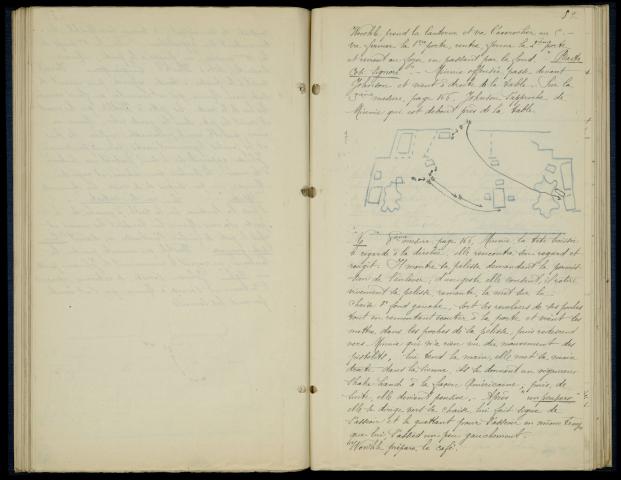 57
Wowkle prend la lanterne et va l'accrocher en C. –
va fermer la 1ère porte, rentre, ferme la 2ème porte
et revient au foyer en passant par le fond. "Basta
Minnie offensée passe devant
Johnson et vient à droite de la table. Sur la
mesure, page 165, Johnson s'approche de
Minnie qui est debout près de la table.
mesure, page 165, Minnie, la tête baissée
le regarde à la dérobée, elle rencontre son regard et
rougit. Il montre sa pelisse demandant la permis-
sion de l'enlever; d'un geste elle consent, il retire
vivement sa pelisse, remonte, la met sur la
chaise du fond gauche, sort ses revolvers de ses poches
tout en remontant écouter à la porte et vient les
mettre dans les poches de la pelisse, puis redescend
vers Minnie qui n'a rien vu du mouvement des
pistolets, lui tend la main, elle met la main
droite dans la sienne. Ils se donnent un vigoureux
shake-hand à la façon Américaine, puis, de
suite, elle devient pensive. – Après
elle se dirige vers la chaise, lui fait signe de
s'asseoir et le guettant pour s'asseoir en même temps
que lui, s'assied un peu gauchement.
Wowkle prépare le café.